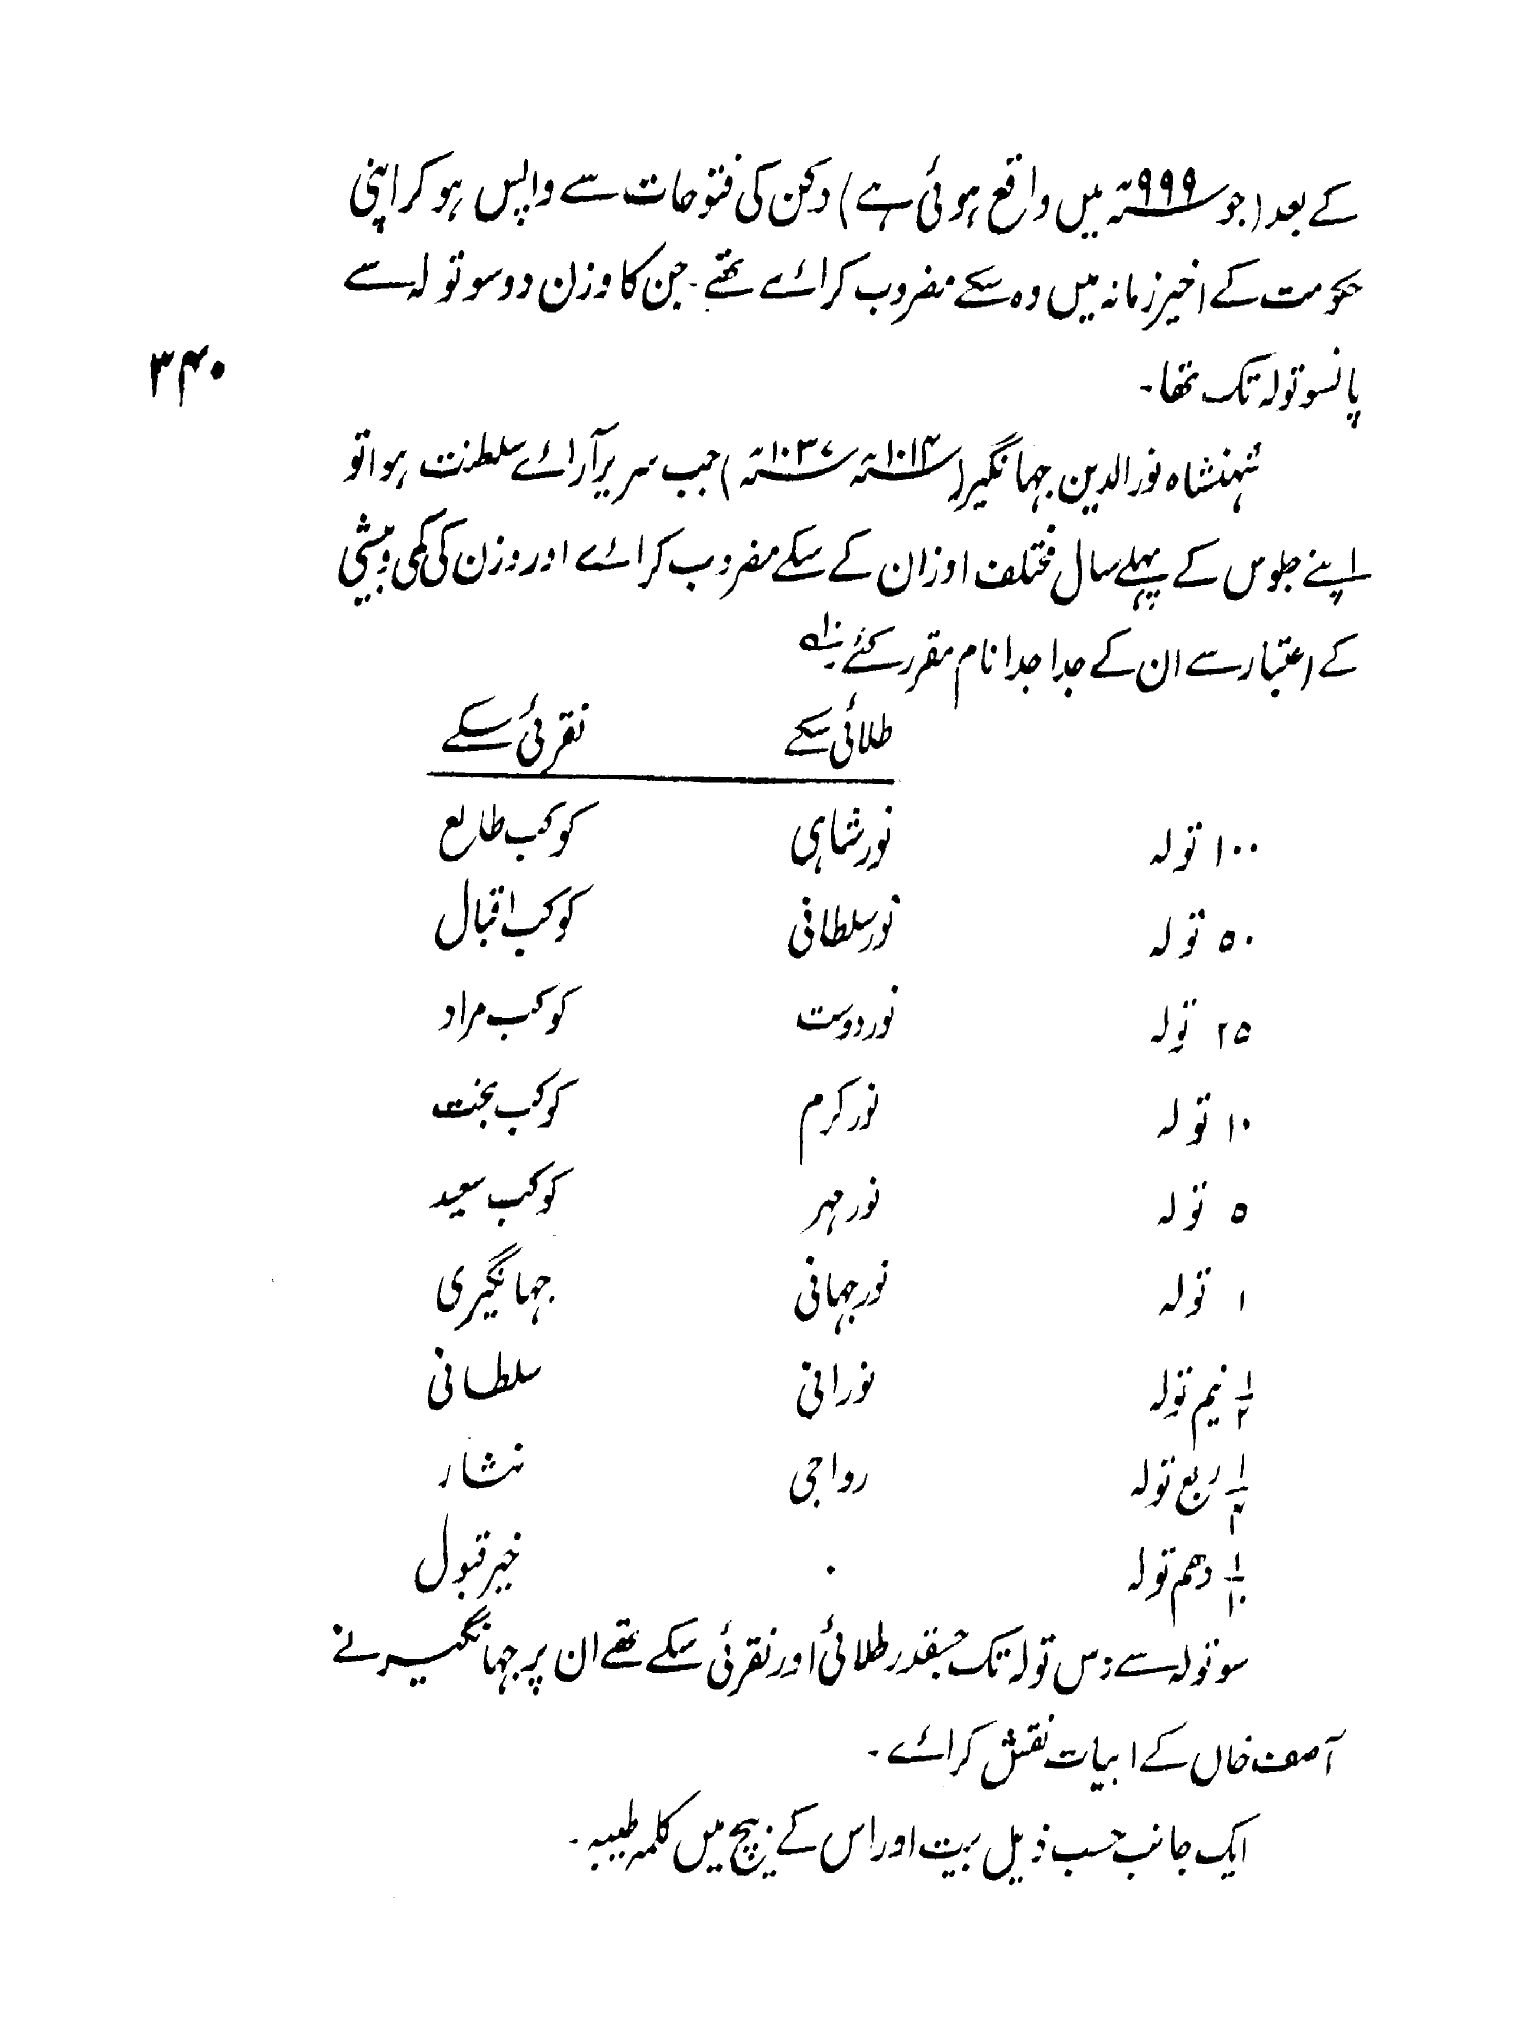 کے بعد (جو ۹۹۹ھ میں واقع ہوئی ہے) دکن کی فتوحات سے واپس ہو کر اپنی
حکومت کے اخیر زمانہ میں وہ سکے مضروب کرائے تھے۔ جن کا وزن دو سو تولہ سے
پانسو تولہ تک تھا۔
۳۴۰
شہنشاہ نور الدین جہانگیر (۱۰۱۴ھ ۱۰۳۷ھ) جب سریر آرائے سلطنت ہوا تو
اپنے جلوس کے پہلے سال مختلف اوزان کے سکے مضروب کرائے اور وزن کی کمی و بیشی
کے اعتبار سے ان کے جدا جدا نام مقرر کئے
طلائی سکے نقرئی سکے
۱۰۰ تولہ نور شاہی کوکب طالع
۵۰ تولہ نور سلطانی کوکب اقبال
۲۵ تولہ نور دوست کوکب مراد
۱۰ تولہ نور کرم کوکب بخت
۵ تولہ نور مہر کوکب سعید
۱ تولہ نور جہانی جہانگیری
۱/۲ نیم تولہ نورانی سلطانی
۱/۴ ربع تولہ رواجی نثار
۱/۱۰ دھم تولہ ۰ خیر قبول
سو تولہ سے دس تولہ تک جسقدر طلائی اور نقرئی سکے تھے ان پر جہانگیر نے
آصف خاں کے ابیات نقش کرائے۔
ایک جانب حسب ذیل بیت اور اس کے بیچ میں کلمہ طیبہ۔